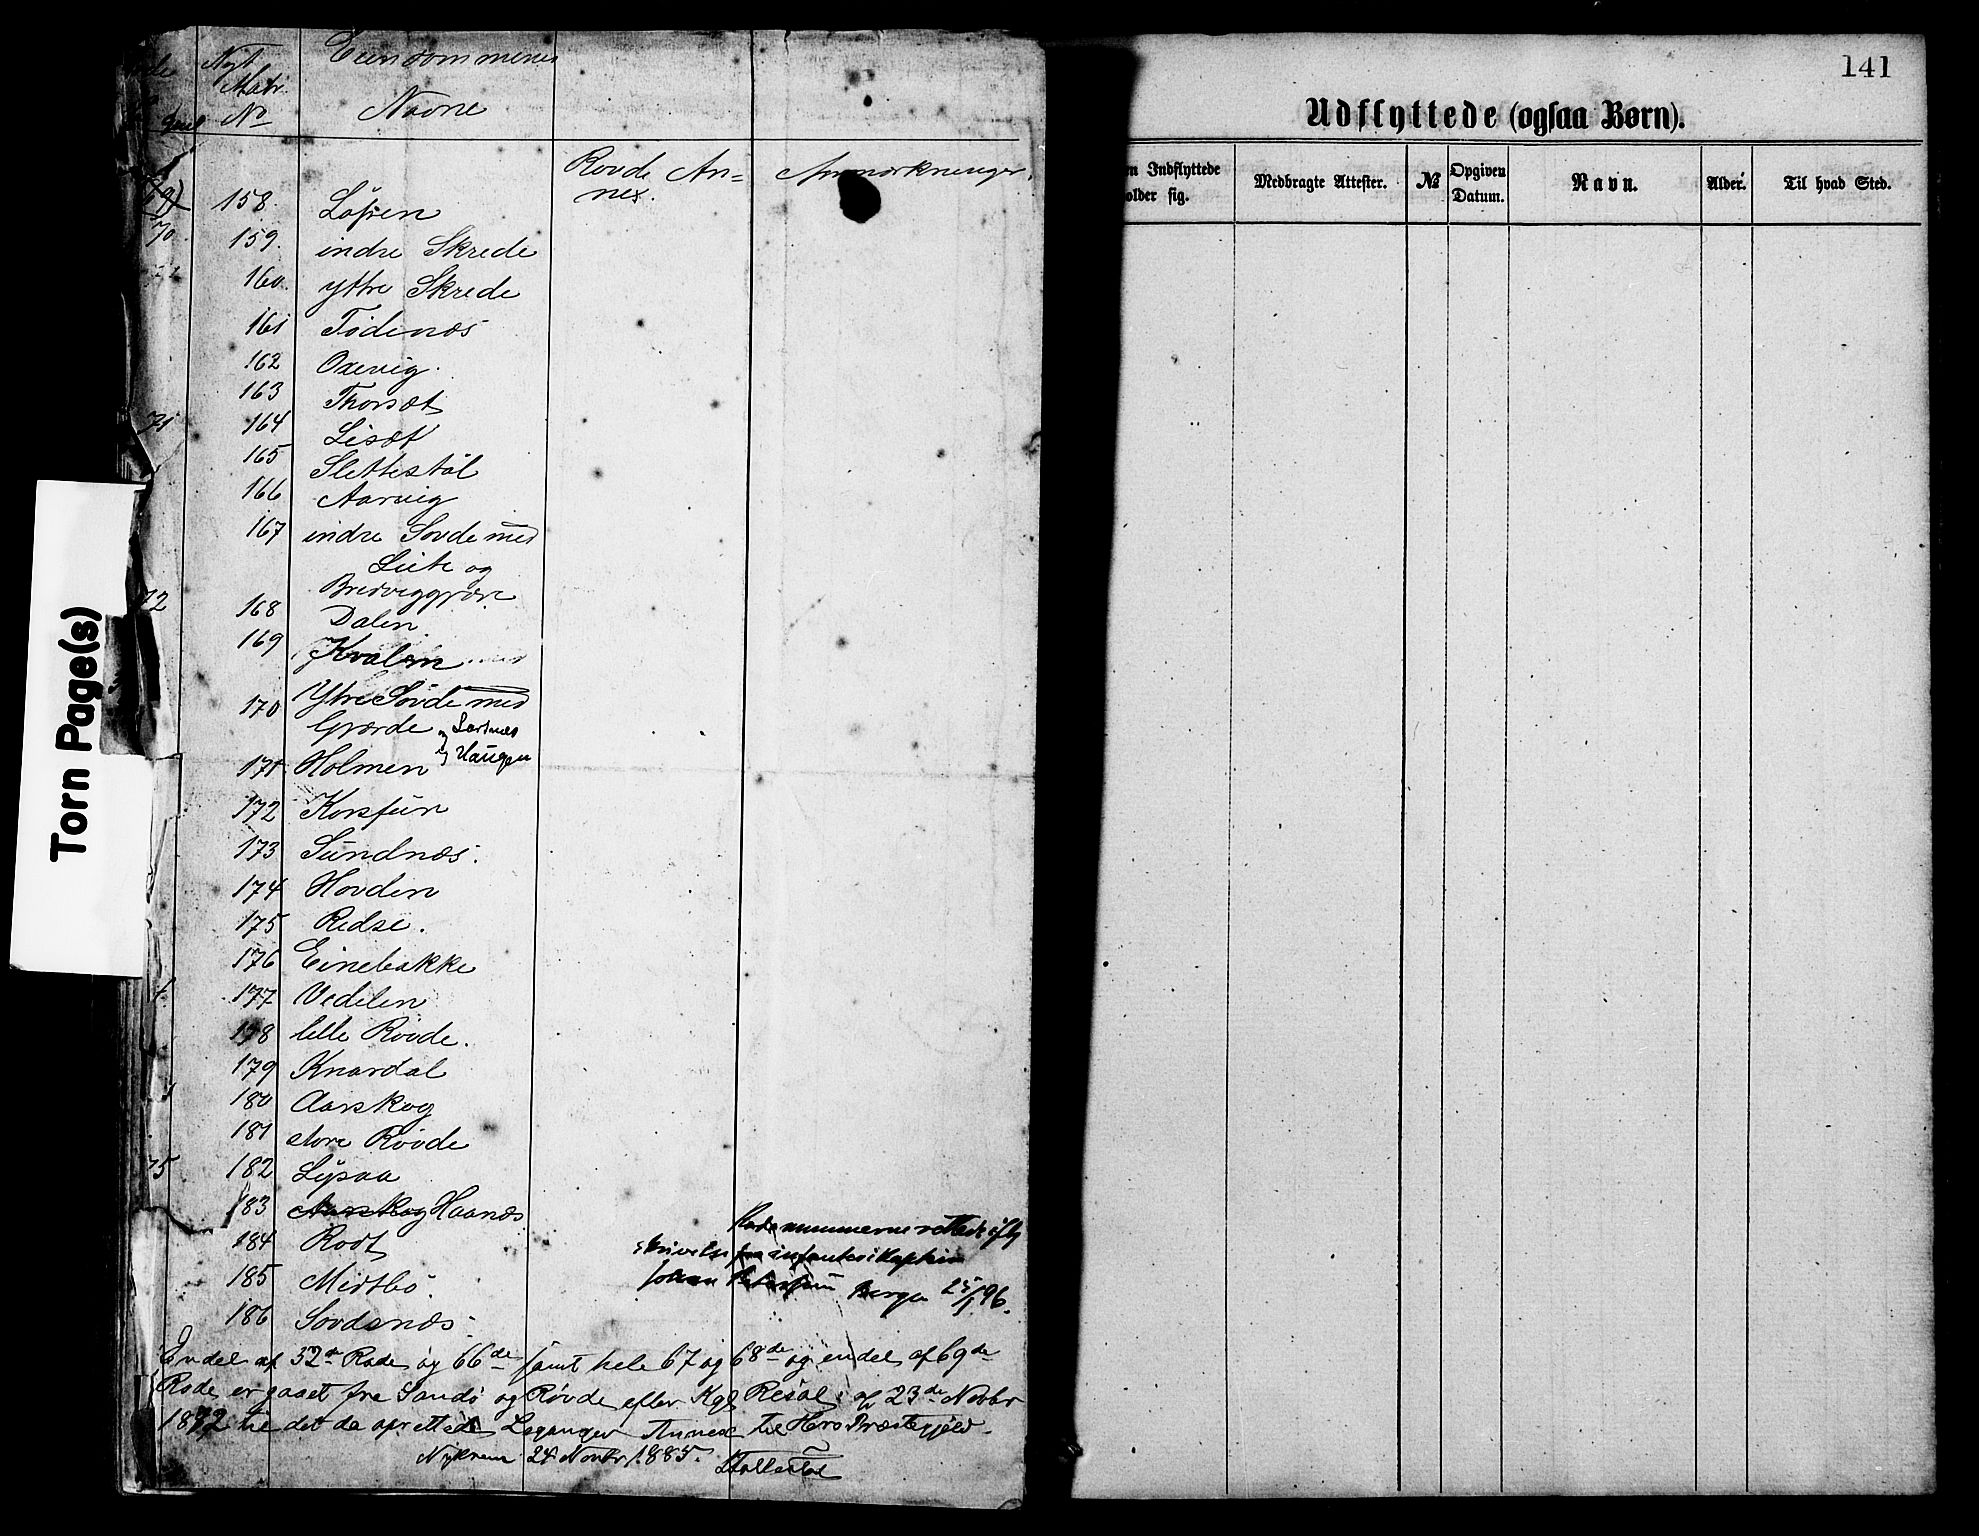 Nyt
Matr.
No
Eiendommenes
Navne
Rovde An=
nex.
Anmærkninger.
158. Løfsen
70. 159. indre Skrede
160. ytre Skrede
161 Tødenæs
162 Oxevig.
163 Thorsæt
71 164 Lisæt
165 Slettestøl
166 Aarvig
167 indre Sovde med
Leite og
72 168 Dalen
169 Kvalen
170 Ytre Sövde med
Gjærde og Haugen
171 Holmen
172 Korsfur
173 Sundnæs.
174 Hovden
175 Redse.
176 Einebakke
177 Vedelen
178 lille Rövde.
179 Knardal
180 Aarskog
181 store Rövde
75 182 Lysaa
183 Aarskog Haanæs
184 Rodt
185 Midtbö.
186 Sovdenæs
Rodenummerne rettede eft
skrivelse fra infanterikaptein
Bergen 25/1 96.
Endel af 32te Rode og 66de samt hele 67 og 68de og endel af 69de
Rode er gaaet fra Sandö og Rövde efter Kgl. Resol: af 23de Novbr
1872 til det da oprettede Leganger Annex til Herø Præstegjeld.
24 Novbr 1885.
Torn Page(s)
141
Udflyttede (ogsaa Børn).
en Indflyttede
older sig.
Medbragte Attester.
№
Opgiven
Datum.
Navn.
Alder.
Til hvad Sted.